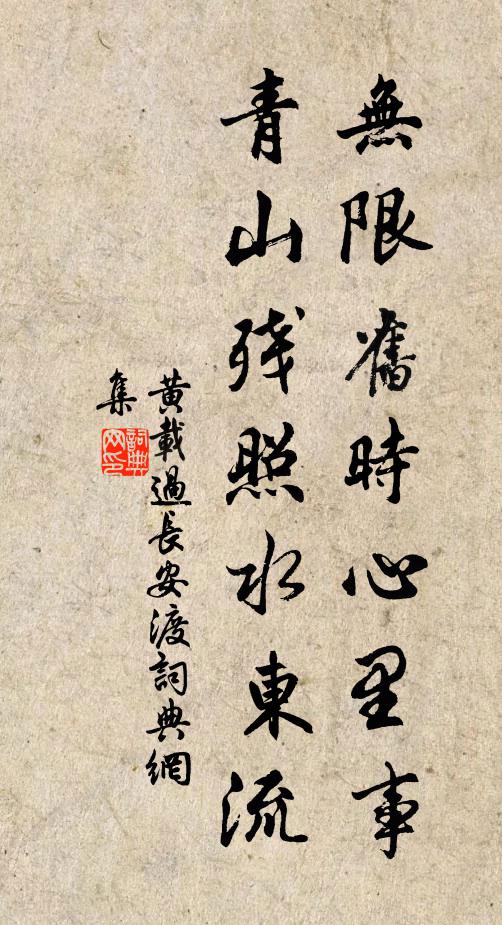 無限舊時心里事
青山残照水東流
黃載過長安渡詞典網
集
詞典
网印